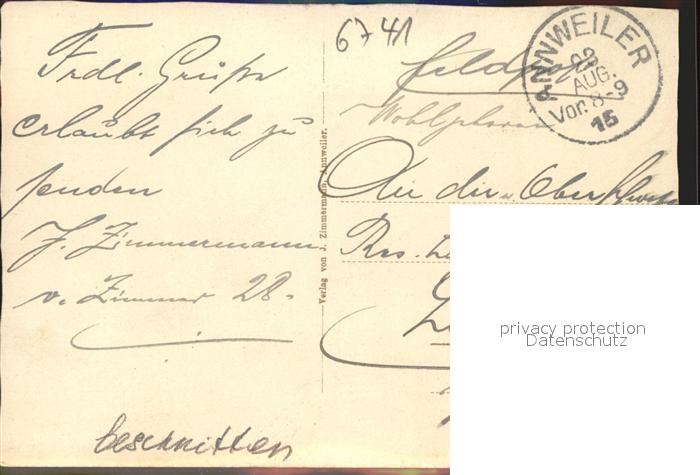 6741
Frdl. Grüße
erlaubt sich zu
senden
J. Zimmermann
v. Zimmer 28.
beschnitten
Verlag von J. Zimmermann, Annweiler.
Feldpost
ANNWEILER
AUG.
Vor. 8-9
15
An die
Res.
privacy protection
Datenschutz